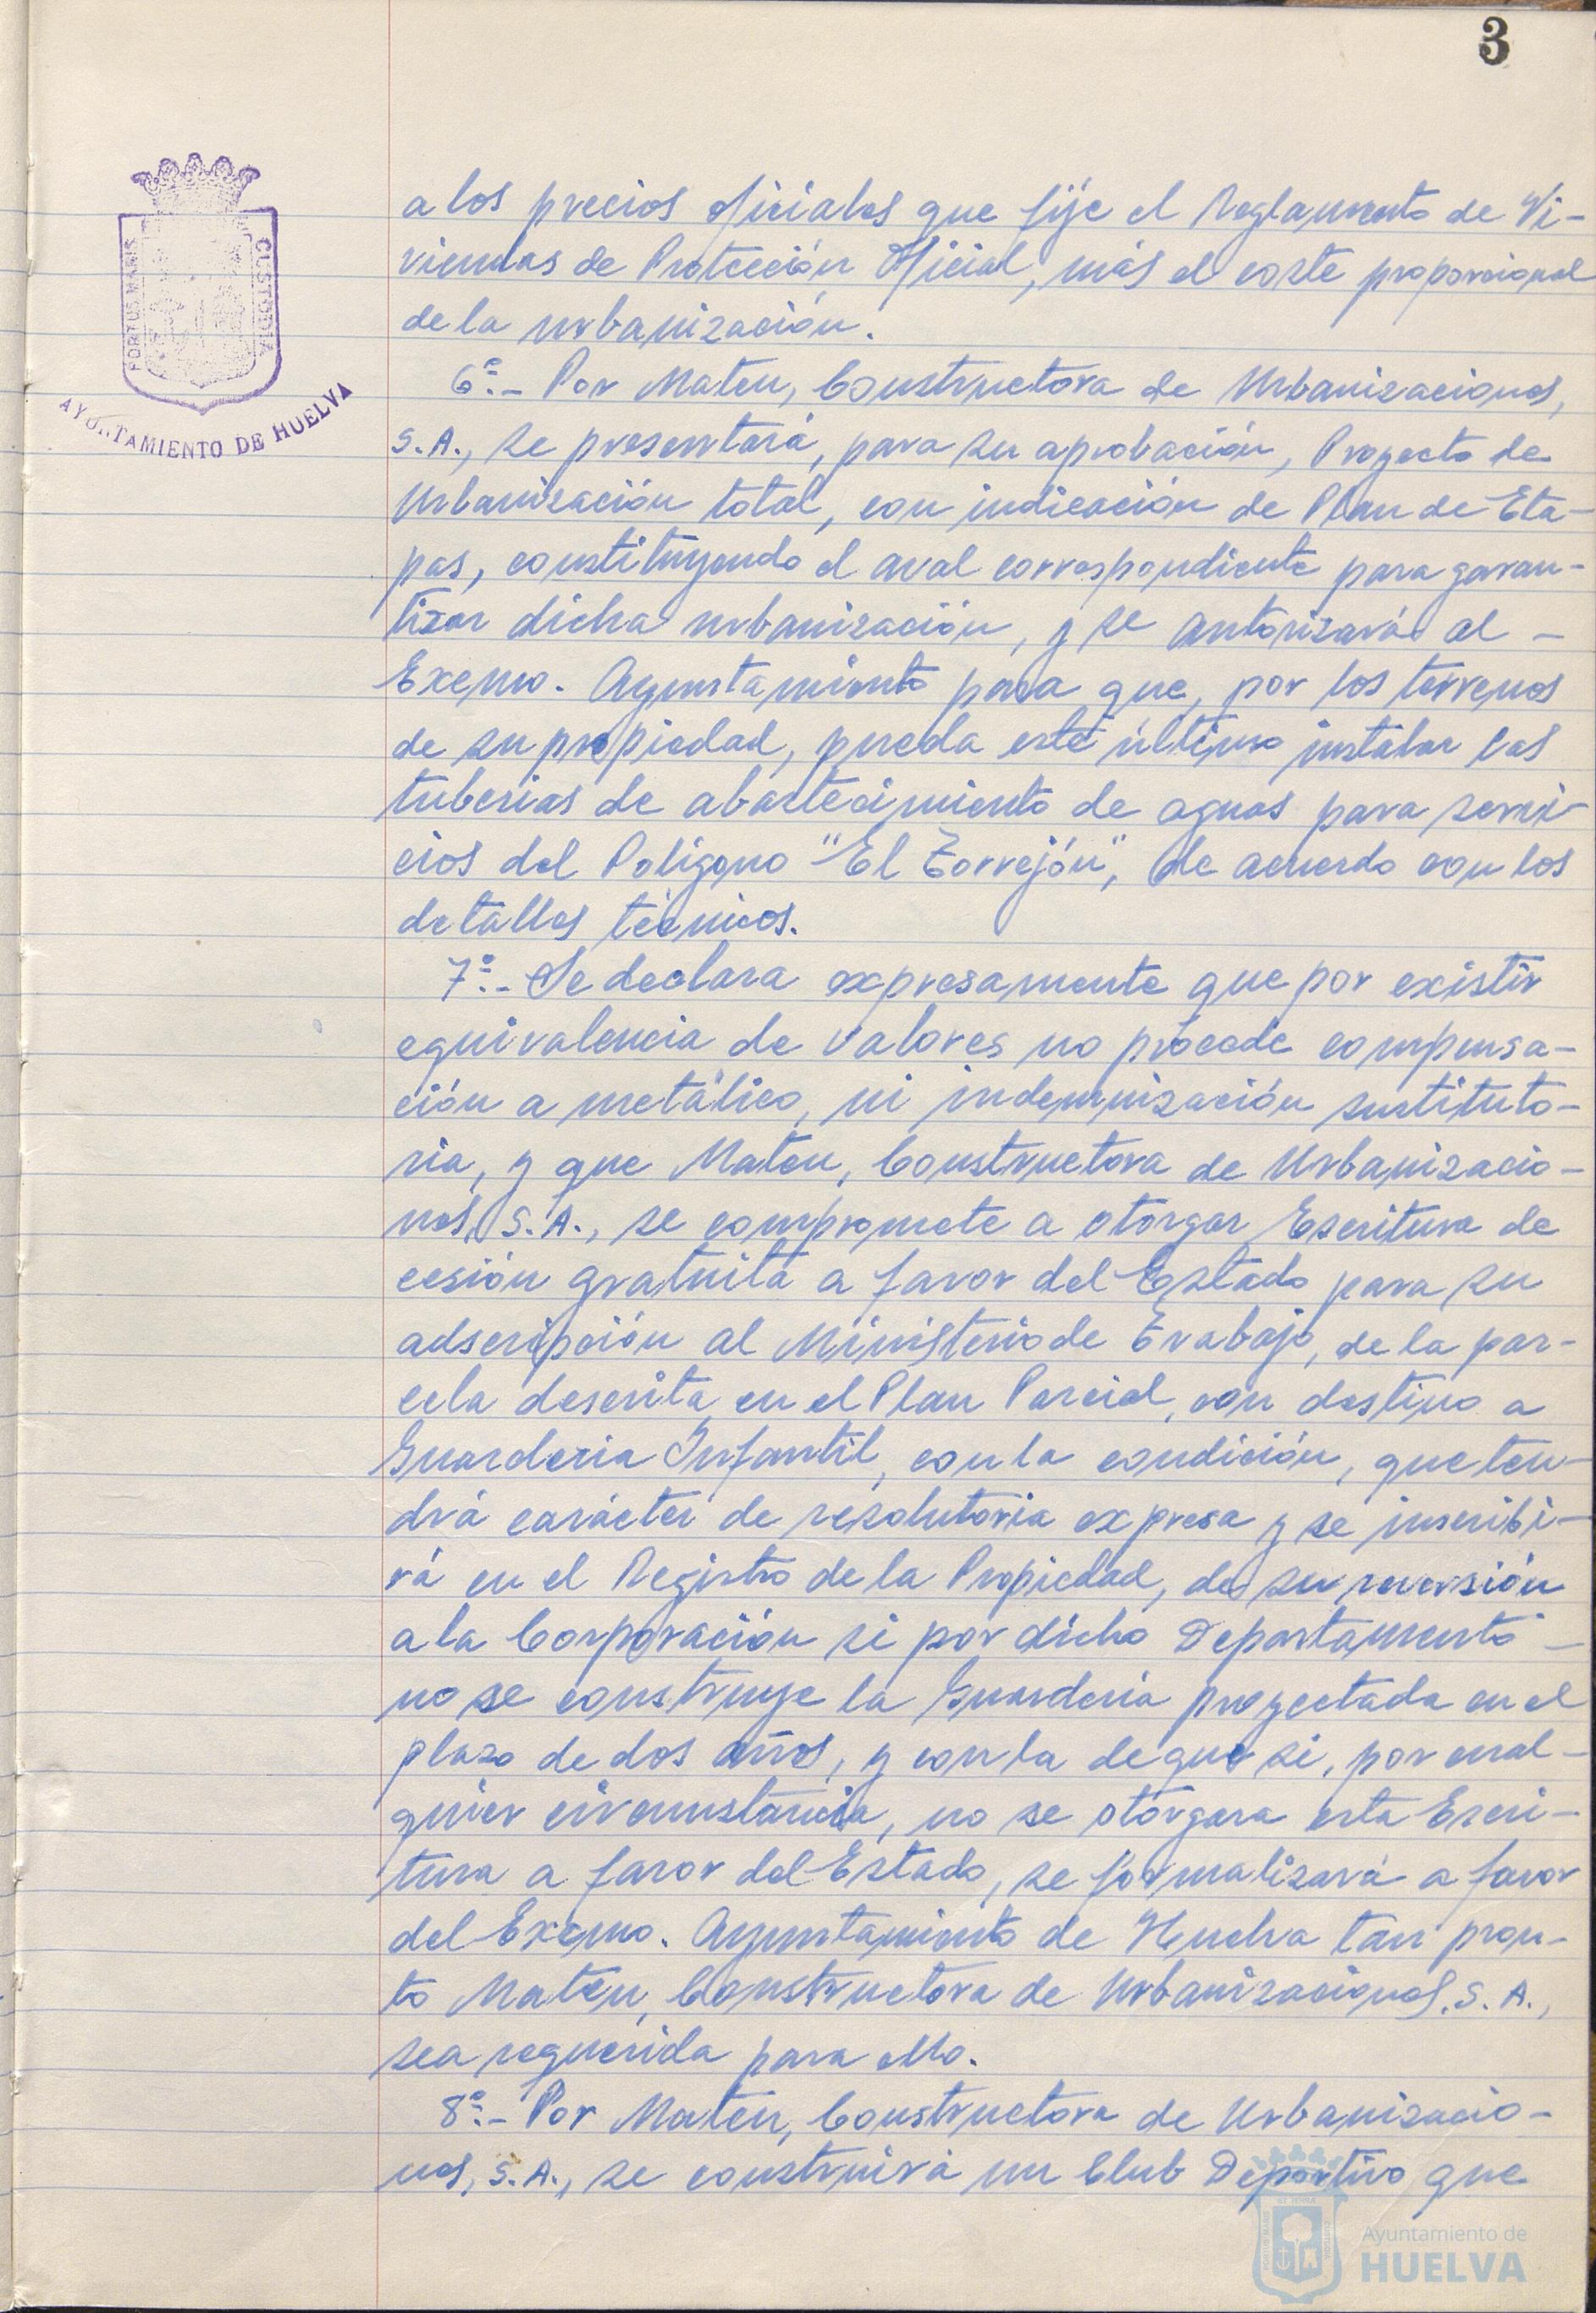 3
PORTUS MARIS
CUSTODIA
AYUNTAMIENTO DE HUELVA
a los precios oficiales que fije el Reglamento de Vi-
viendas de Protección Oficial, más el coste proporcional
de la urbanización.
6º.- Por Mateu, Constructora de Urbanizaciones,
S.A., se presentará, para su aprobación, Proyecto de
Urbanización total, con indicación de Plan de Eta-
pas, constituyendo el aval correspondiente para garan-
tizar dicha urbanización, y se autorizará al -
Excmo. Ayuntamiento para que, por los terrenos
de su propiedad, pueda este último instalar las
tuberias de abastecimiento de aguas para servi-
cios del Polígono "El Torrejón", de acuerdo con los
detalles técnicos.
7º.- Se declara expresamente que por existir
equivalencia de valores no procede compensa-
ción a metálico, ni indemnización sustituto-
ria, y que Mateu, Constructora de Urbanizacio-
nes, S.A., se compromete a otorgar Escritura de
cesión gratuita a favor del Estado para su
adscripción al Ministerio de Trabajo, de la par-
cela descrita en el Plan Parcial, con destino a
Guarderia Infantil, con la condición, que ten-
drá carácter de resolutoria expresa y se inscribi-
rá en el Registro de la Propiedad, de su reversión
a la Corporación si por dicho Departamento -
no se construye la Guardería proyectada en el
plazo de dos años, y con la de que si, por cual-
quier circunstancia, no se otorgara esta Escri-
tura a favor del Estado, se formalizará a favor
del Excmo. Ayuntamiento de Huelva tan pron-
to Mateu, Constructora de Urbanizaciones, S.A.,
sea requerida para ello.
8º.- Por Mateu, Constructora de Urbanizacio-
nes, S.A., se construirá un Club Deportivo que
Ayuntamiento de
HUELVA